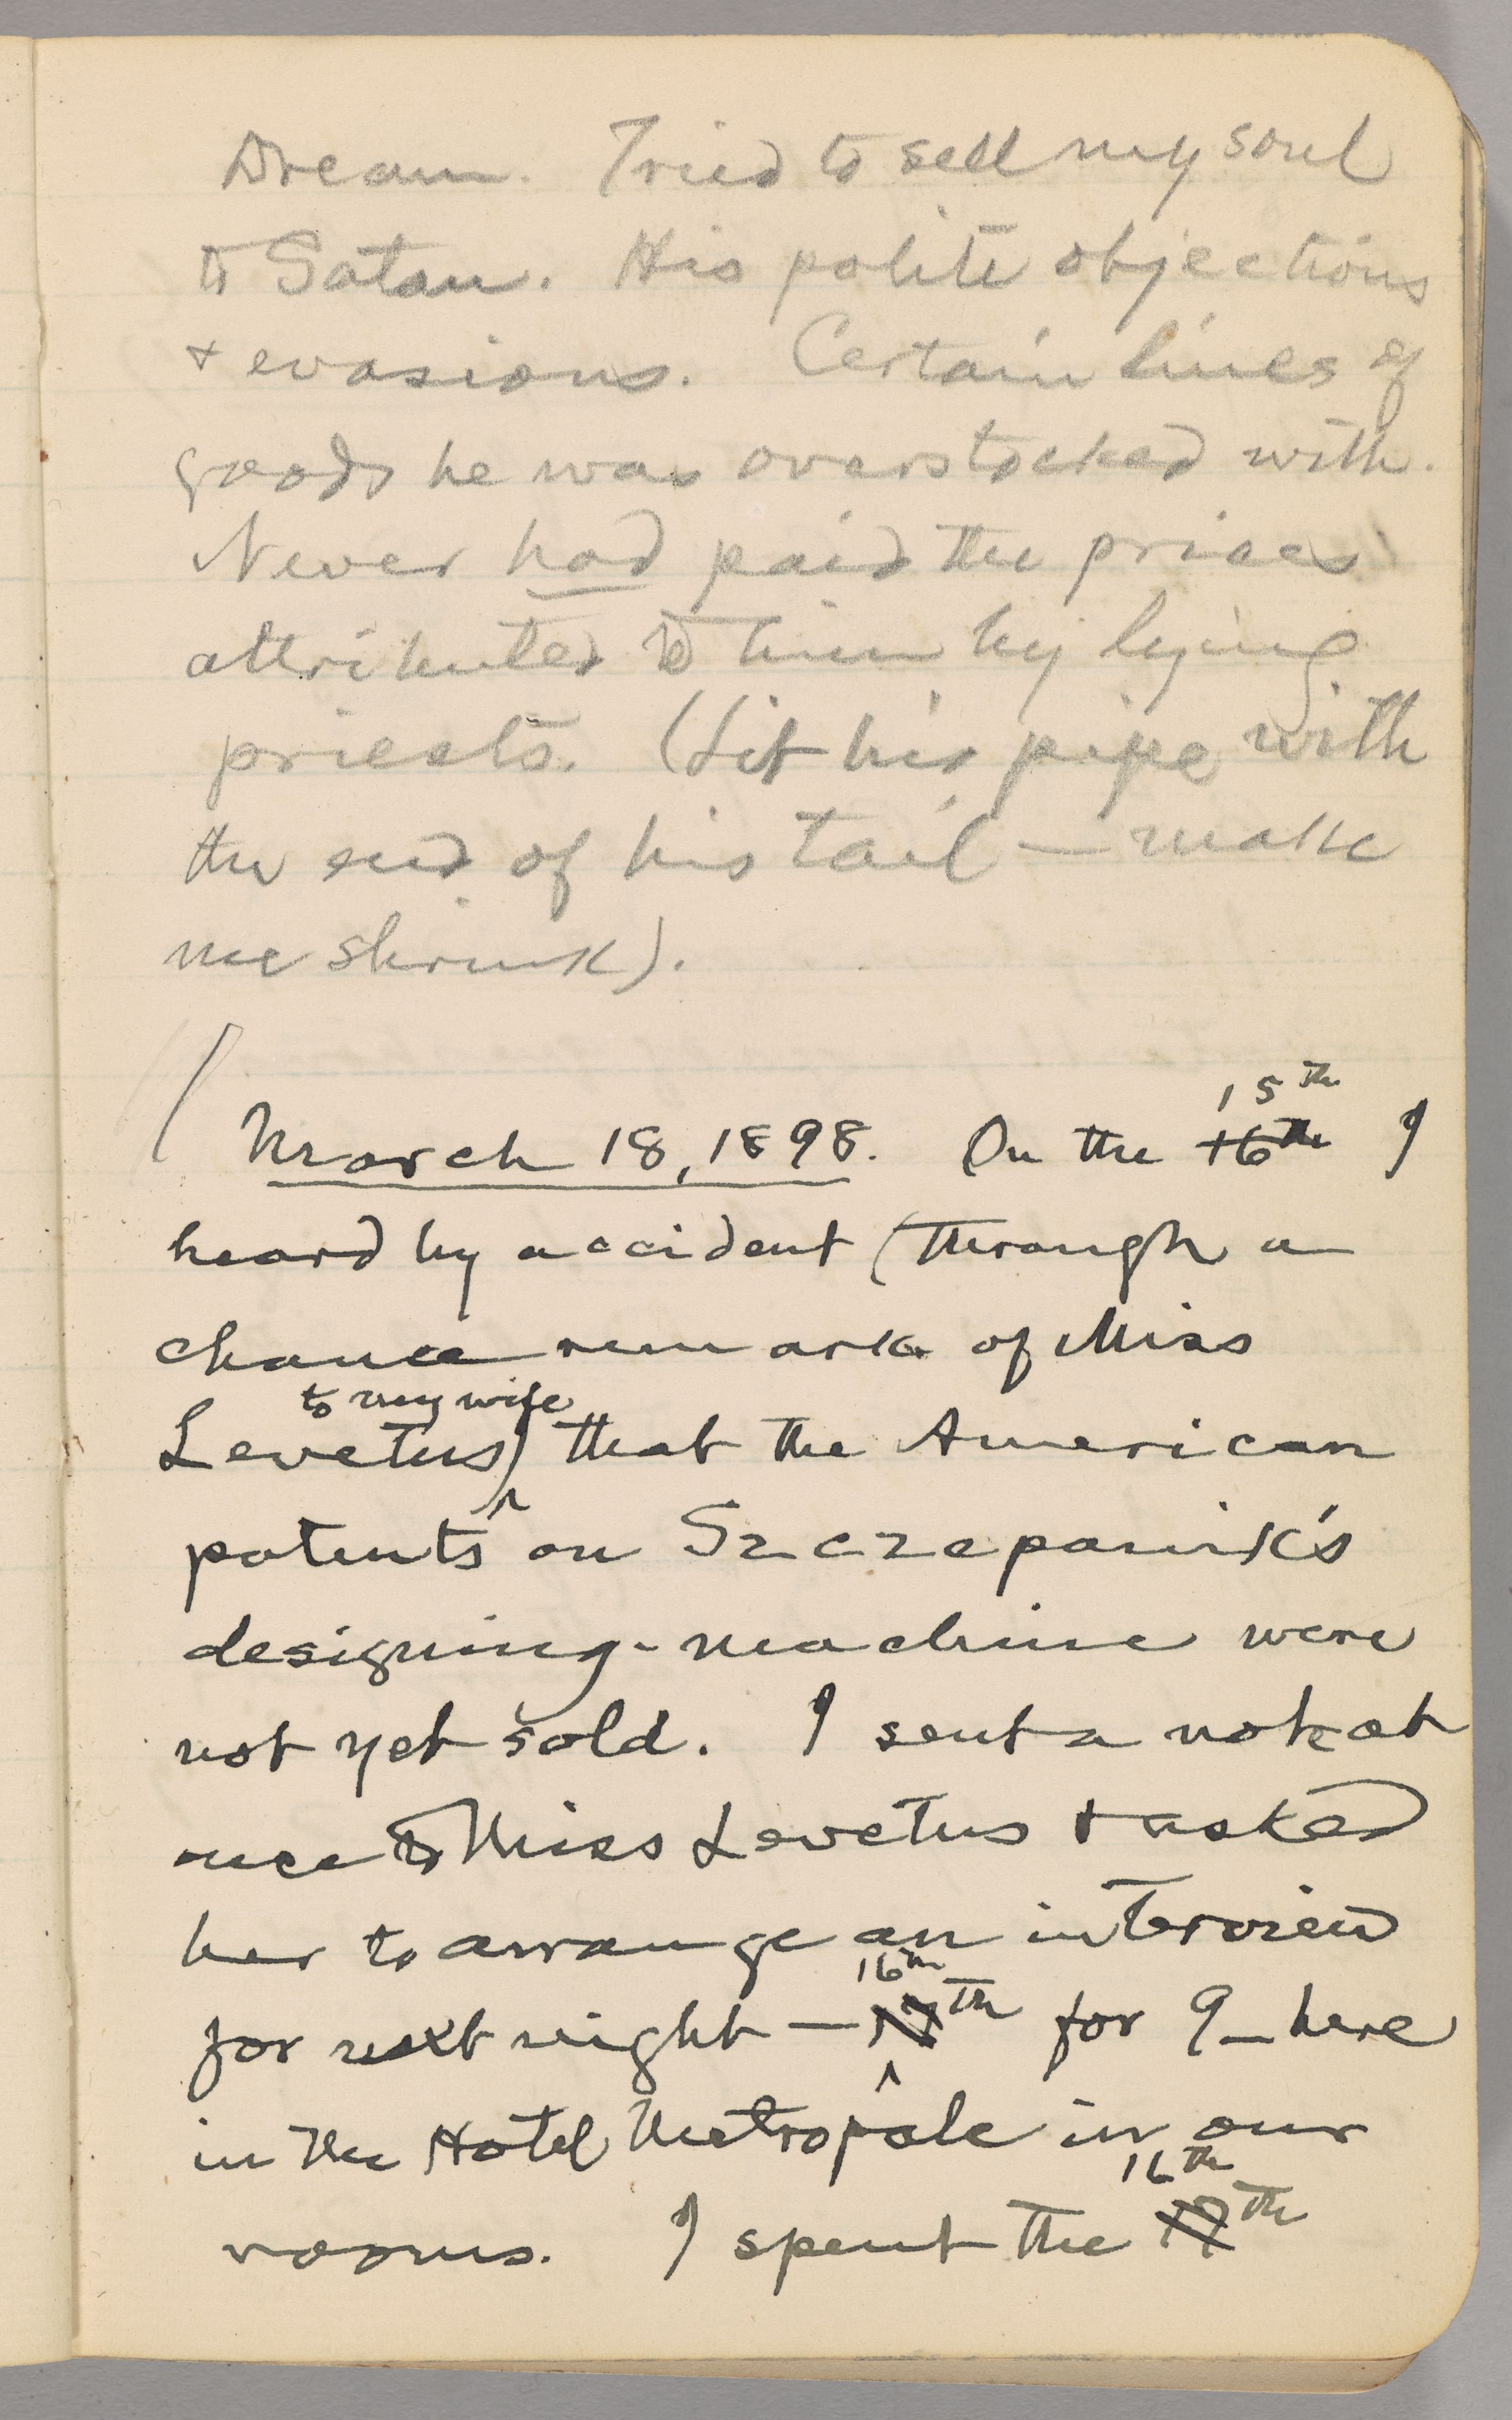 Dream. Tried to sell my soul
to Satan. His polite objections
& evasions. Certain lines of
goods he was overstocked with.
Never had paid the prices
attributed to him by lying
priests. (Lit his pipe with
the end of his tail — make
me shrink).
March 18, 1898. On the 16th 15th I
heard by accident (through a
chance remark of Miss
Levetus to my wife) that the American
patents on Szczepanik's
designing-machine were
not yet sold. I sent a note at
once to Miss Levetus & asked
her to arrange an interview
for next night — 17th 16th for 9 — here
in the Hotel Metropole in our
rooms. I spent the 17th 16th